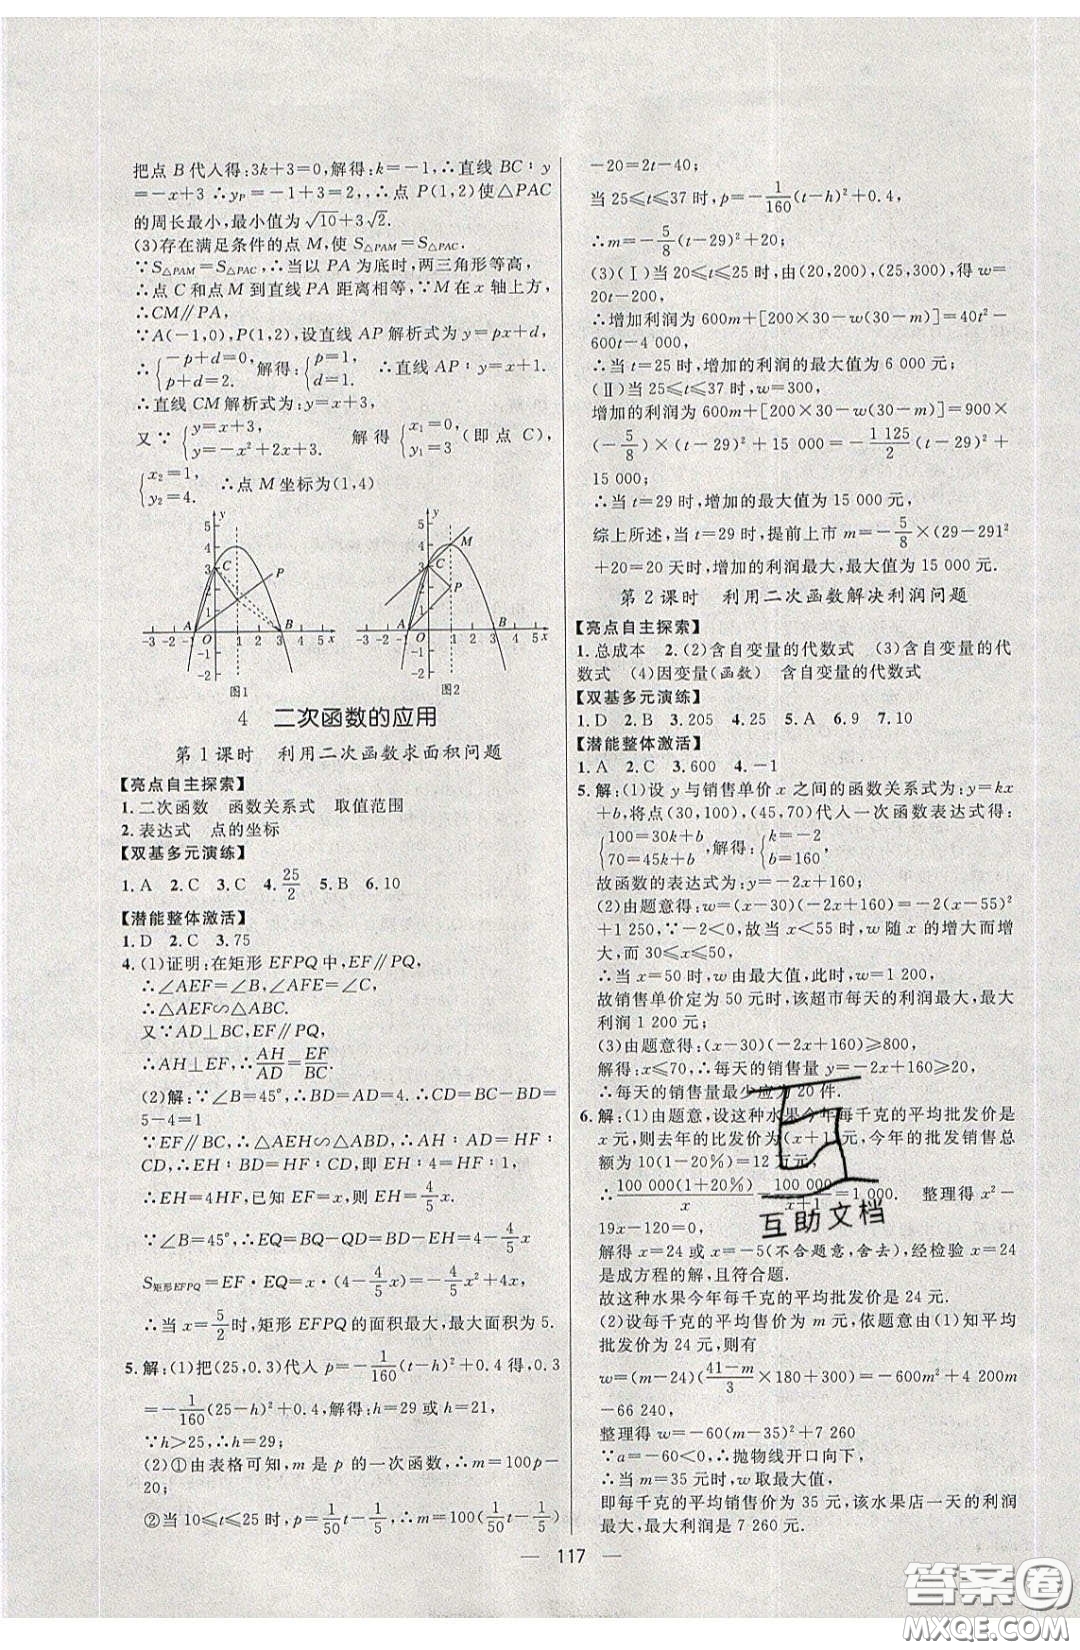 把点 B 代人得:3k+3=0,解得:k=-1,∴直线 BC:y
=-x+3 ∴yP=-1+3=2,∴点 P(1,2)使△PAC
的周长最小,最小值为√10+3√2.
(3)存在满足条件的点 M,使 S△PAM=S△PAC.
∵S△PAM=S△PAC,∴当以 PA 为底时,两三角形等高,
∴点 C 和点 M 到直线 PA 距离相等,∵M 在 x 轴上方,
∴CM∥PA,
∵A(-1,0),P(1,2),设直线 AP 解析式为y=px+d,
∴{-p+d=0, p+d=2. 解得:{p=1, d=1. ∴直线 AP:y=x+1.
∴直线 CM 解析式为:y=x+3,
又∵{y=x+3, y=-x²+2x+3. 解得{x1=0, y1=3 (即点 C),
{x2=1, y2=4. ∴点 M 坐标为(1,4)
图1 图2
4 二次函数的应用
第 1 课时 利用二次函数求面积问题
【亮点自主探索】
1. 二次函数 函数关系式 取值范围
2. 表达式 点的坐标
【双基多元演练】
1. A 2. C 3. C 4. 25/2 5. B 6. 10
【潜能整体激活】
1. D 2. C 3. 75
4. (1)证明:在矩形 EFPQ 中,EF∥PQ,
∴∠AEF=∠B,∠AFE=∠C,
∴△AEF∽△ABC,
又∵AD⊥BC,EF∥PQ,
∴AH⊥EF,∴AH/AD=EF/BC;
(2)解:∵∠B=45°,∴BD=AD=4. ∴CD=BC-BD=
5-4=1
∵EF∥BC,∴△AEH∽△ABD,△AHF∽△ADC,∴EH:
CD,∴EH:BD=HF:CD,即 EH:HF=BD:CD=4:1,
∴EH=4HF,已知 EF=x,则 EH=4/5x.
∵∠B=45°,∴EQ=BQ=BD-QD=BD-EH=4-4/5x,
S矩形EFPQ=EF·EQ=x·(4-4/5x)=-4/5x²+4x,
∴当 x=5/2时,矩形 EFPQ的面积最大,最大面积为 5.
5. 解:(1)把(25,0.3)代人 p=-1/160(t-h)²+0.4得,0.3
=-1/160(25-h)²+0.4,解得:h=29 或 h=21,
∵h>25,∴h=29;
(2)①由表格可知,m 是 p 的一次函数,∴m=100p-
20;
②当 10≤t≤25 时,p=1/50t-1/5,∴m=100(1/50t-1/5)
-20=2t-40;
当 25≤t≤37 时,p=-1/160(t-h)²+0.4,
∴m=-5/8(t-29)²+20;
(3)(Ⅰ)当 20≤t≤25 时,由(20,200),(25,300),得 w=
20t-200,
∴增加利润为 600m+[200×30-w(30-m)]=40t²-
600t-4 000,
∴当 t=25 时,增加的利润的最大值为 6 000 元;
(Ⅱ)当 25≤t≤37 时,w=300,
增加的利润为 600m+[200×30-w(30-m)]=900×
(-5/8)×(t-29)²+15 000=-1 125/2(t-29)²+
15 000;
∴当 t=29 时,增加的最大值为 15 000 元,
综上所述,当 t=29 时,提前上市 m=-5/8×(29-291²
+20=20天时,增加的利润最大,最大值为 15 000 元.
第 2 课时 利用二次函数解决利润问题
【亮点自主探索】
1. 总成本 2. (2)含自变量的代数式 (3)含自变量的代
数式 (4)因变量(函数) 含自变量的代数式
【双基多元演练】
1. D 2. B 3. 205 4. 25 5. A 6. 9 7. 10
【潜能整体激活】
1. A 2. C 3. 600 4. -1
5. 解:(1)设 y 与销售单价 x 之间的函数关系式为:y=kx
+b,将点(30,100),(45,70)代人一次函数表达式得:
{100=30k+b, 70=45k+b 解得:{k=-2 b=160,
故函数的表达式为:y=-2x+160;
(2)由题意得:w=(x-30)(-2x+160)=-2(x-55)²
+1 250,∵-2<0,故当 x<55 时,w 随 x 的增大而增
大,而 30≤x≤50,
∴当 x=50 时,w 由最大值,此时,w=1 200,
故销售单价定为 50 元时,该超市每天的利润最大,最大
利润 1 200 元;
(3)由题意得:(x-30)(-2x+160)≥800,
解得:x≤70,∴每天的销售量 y=-2x+160≥20,
∴每天的销售量最少应为 20 件.
6. 解:(1)由题意,设这种水果今年每千克的平均批发价是
x 元,则去年的比发价为(x+1)元,今年的批发销售总
额为 10(1-20%)=12 万元,
∴100 000(1+20%)/x-100 000/(x+1)=1 000. 整理得 x²-
19x-120=0,
解得 x=24 或 x=-5(不合题意,舍去),经检验 x=24
是成方程的解,且符合题.
故这种水果今年每千克的平均批发价是 24 元.
(2)设每千克的平均售价为 m 元,依题意由(1)知平均
批发价为 24 元,则有
w=(m-24)(41-m/3×180+300)=-60m²+4 200m
-66 240,
整理得 w=-60(m-35)²+7 260
∵a=-60<0,∴抛物线开口向下,
∴当 m=35 元时,w 取最大值,
即每千克的平均销售价为 35 元,该水果店一天的利润
最大,最大利润是 7 260 元.
互助文档
— 117 —
答案圈
MXQE.COM